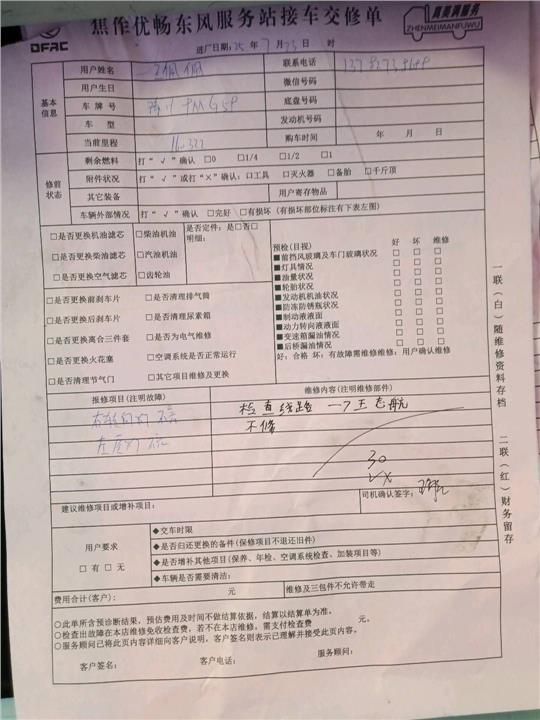 DFAC
焦作优畅东风服务站接车交修单
真美满服务
ZHENMEIMANFUWU
进厂日期: 25 年 7 月 23 日 时
基本信息
用户姓名 联系电话
用户生日 微信号码
车牌号 底盘号码
车型 发动机号码
当前里程 购车时间 年 月 日
修前状态
剩余燃料 打“√”确认 □0 □1/4 □1/2 □1
附件状况 打“√”或打“×”确认:□工具 □灭火器 □备胎 □千斤顶
其它装备 用户寄存物品
车辆外部情况 打“√”确认 □完好 □有损坏 (有损坏部位标注有下表左图)
□是否更换机油滤芯 □柴油机油 是否定件: 是□否□
明细:
□是否更换柴油滤芯 □汽油机油
□是否更换空气滤芯 □齿轮油
预检(目视) 好 坏 维修
■前挡风玻璃及车门玻璃状况 □ □ □
■灯具情况 □ □ □
■油量状况 □ □ □
■轮胎状况 □ □ □
■发动机机油状况 □ □ □
■防冻防锈瓶状况 □ □ □
■制动液液面 □ □ □
■动力转向液液面 □ □ □
■变速箱漏油情况 □ □ □
■后桥漏油情况 □ □ □
好:合格 坏:有故障需维修维修:用户确认维修
□是否更换前刹车片 □是否清理排气筒
□是否更换后刹车片 □是否清理尿素箱
□是否更换离合三件套 □是否为电气维修
□是否更换火花塞 □空调系统是否正常运行
□是否清理节气门 □其它项目维修及更换
报修项目(注明故障) 维修内容(注明维修部件)
检查线路
不修
30
建议维修项目或增补项目:
司机确认签字:
用户要求
□有 □无
◆交车时限
◆是否归还更换的备件(保修项目不退还旧件)
◆是否增补其他项目(保养、年检、空调系统检查、加装项目等)
◆车辆是否需要清洁:
费用合计(客户): 元 维修及三包件不允许带走
○此单所含预诊断结果,预估费用及时间不做结算依据,结算以结算单为准。
○检查出故障在本店维修免收检查费,若不在本店维修,需支付检查费 元。
○服务顾问已将此页内容详细向客户说明,客户签名则表示已理解并接受此页内容。
客户签名: 客户电话: 服务顾问:
一联(白)随维修资料存档 二联(红)财务留存